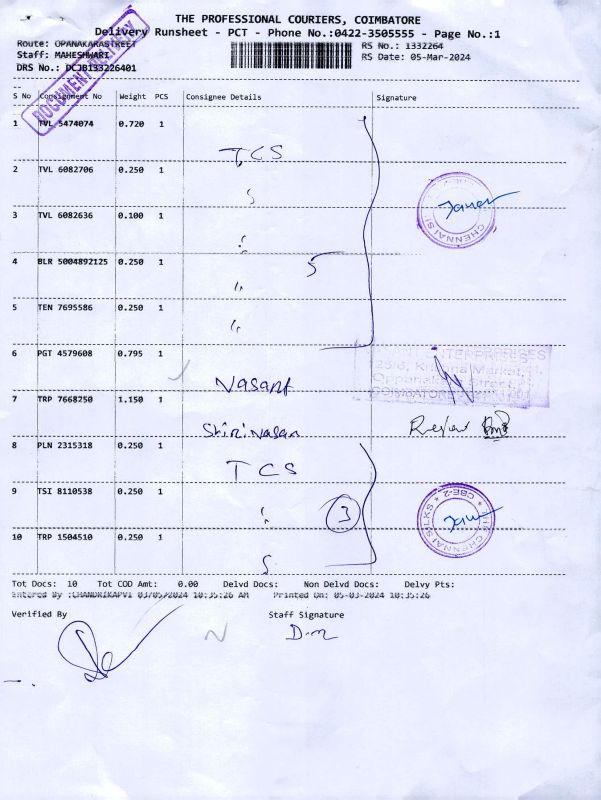 THE PROFESSIONAL COURIERS, COIMBATORE
Delivery Runsheet - PCT - Phone No.:0422-3505555 - Page No.:1
Route: OPANAKARASTREET
Staff: MAHESHWARI
DRS No.: DCJB133226401
RS No.: 1332264
RS Date: 05-Mar-2024
DOCUMENT
S No Consignment No Weight PCS Consignee Details Signature
1 TVL 5474074 0.720 1
TCS
2 TVL 6082706 0.250 1
3 TVL 6082636 0.100 1
4 BLR 5004892125 0.250 1 5
"
5 TEN 7695586 0.250 1
"
6 PGT 4579608 0.795 1
Nasant
7 TRP 7668250 1.150 1
ShriNasan
8 PLN 2315318 0.250 1
TCS
9 TSI 8110538 0.250 1
3
10 TRP 1504510 0.250 1
CHENNAI SI
ENTERPRISES
COIMBATORE
CHENNAI SILKS * CBE-2 *
Tot Docs: 10 Tot COD Amt: 0.00 Delvd Docs: Non Delvd Docs: Delvy Pts:
Entered By :CHANDRIKAPVI 03/05/2024 10:35:26 AM Printed On: 05-03-2024 10:35:26
Verified By Staff Signature